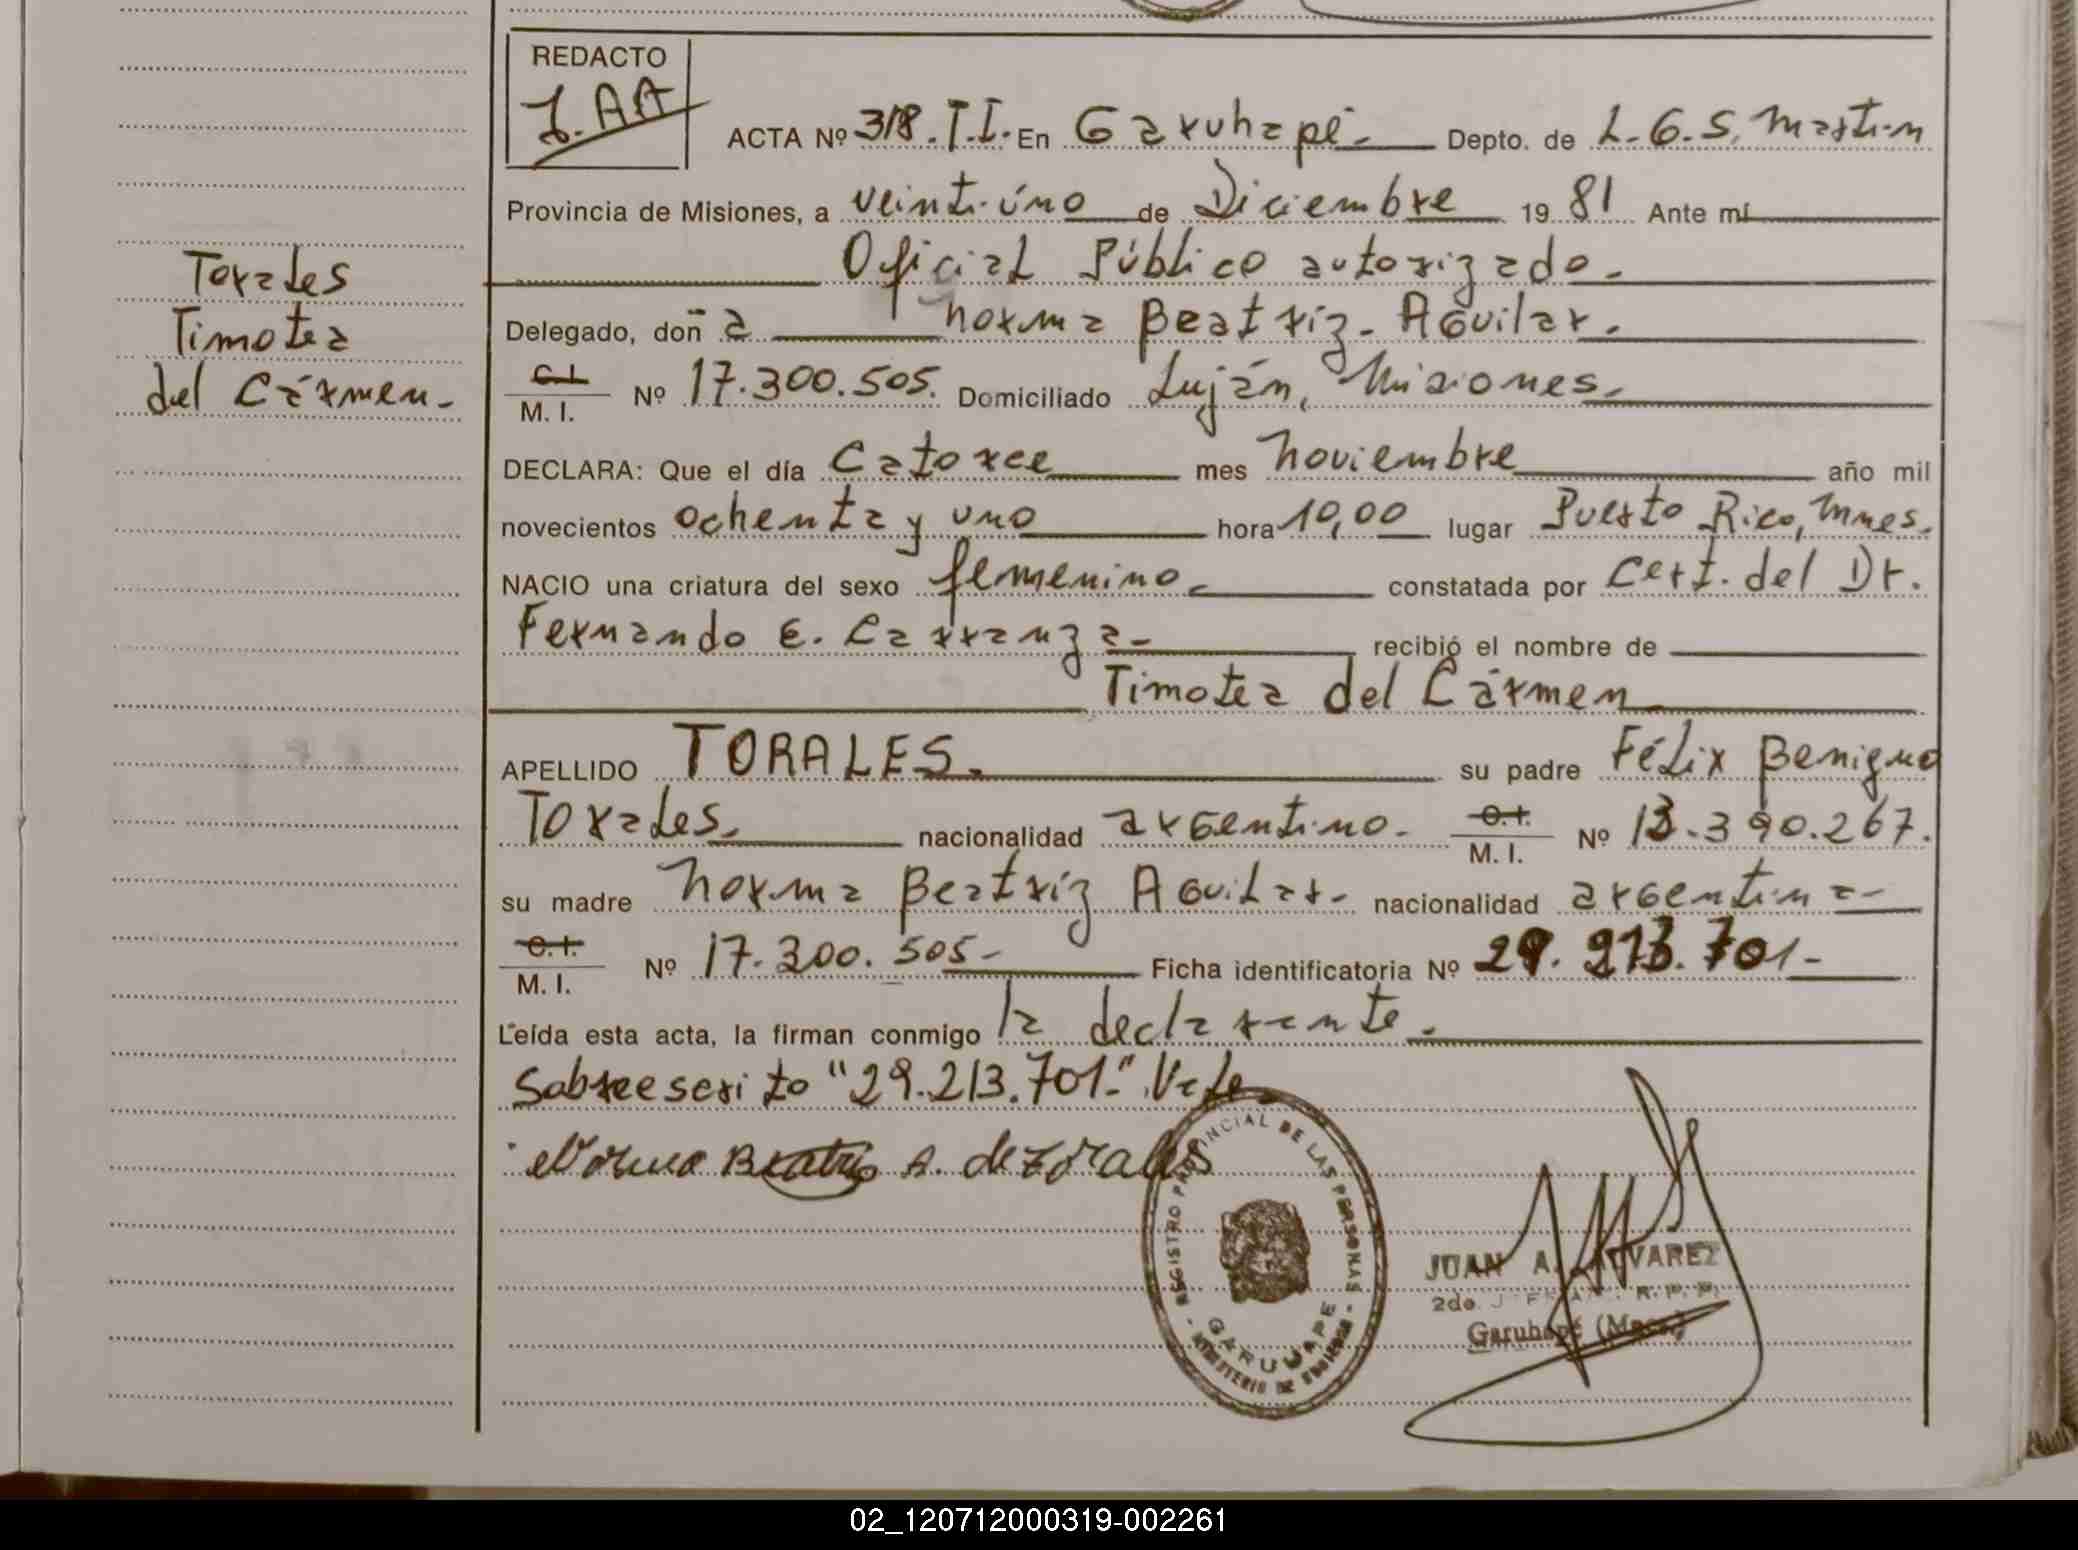 REDACTO
J.AA
ACTA Nº 318.T.I. En Garuhapé. Depto. de L.G.S. Martin
Provincia de Misiones, a veintiúno de Diciembre 19 81 Ante mí
Oficial Público autorizado.
Delegado, doña Norma Beatríz Aguilar.
C.I. M. I. Nº 17.300.505. Domiciliado Luján, Misiones.
DECLARA: Que el día Catorce mes noviembre año mil
novecientos ochenta y uno hora 10,00 lugar Puerto Rico, Mnes.
NACIO una criatura del sexo femenino. constatada por Cert. del Dr.
Fernando E. Carranza recibió el nombre de
Timotea del Cármen
APELLIDO TORALES. su padre Félix Benigno
Torales. nacionalidad argentino. C.I. M. I. Nº 13.390.267.
su madre Norma Beatríz Aguilar. nacionalidad argentina
C.I. M. I. Nº 17.300.505- Ficha identificatoria Nº 29.213.701-
Leída esta acta, la firman conmigo la declarante.
Sobreescrito "29.213.701-" Vale
Norma Beatriz A. de Torales
Torales
Timotea
del Cármen-
REGISTRO PROVINCIAL DE LAS PERSONAS
GARUHAPE
MINISTERIO DE GOBIERNO
JUAN A. ALVAREZ
2do. JEFE R.P.P.
Garuhapé (Mnes.)
02_120712000319-002261